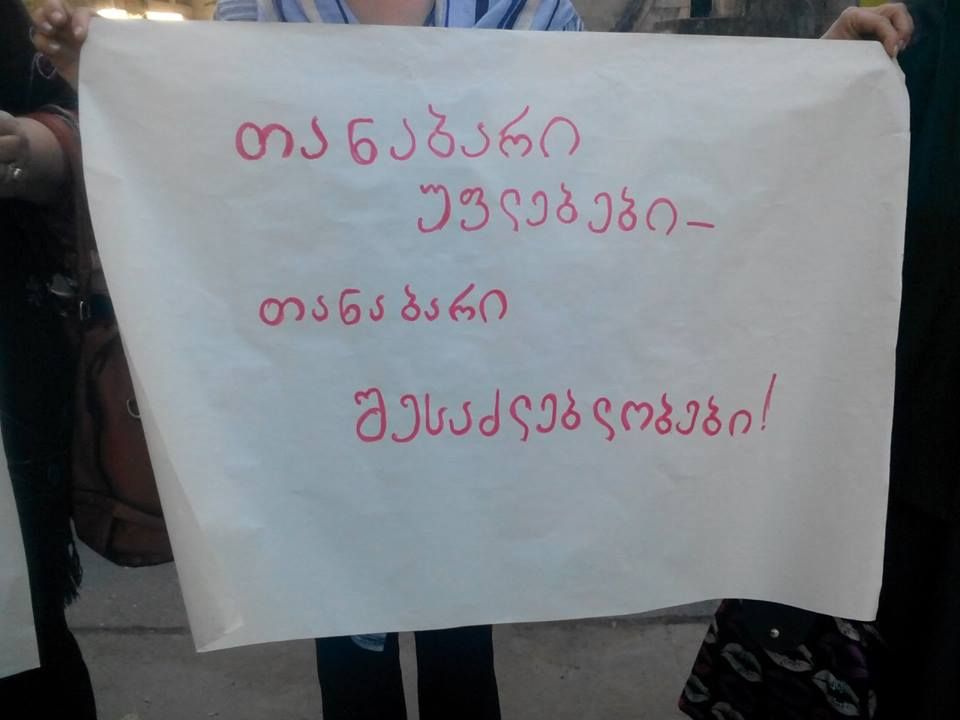 თანაბარი
უფლებები–
თანაბარი
შესაძლებლობები!